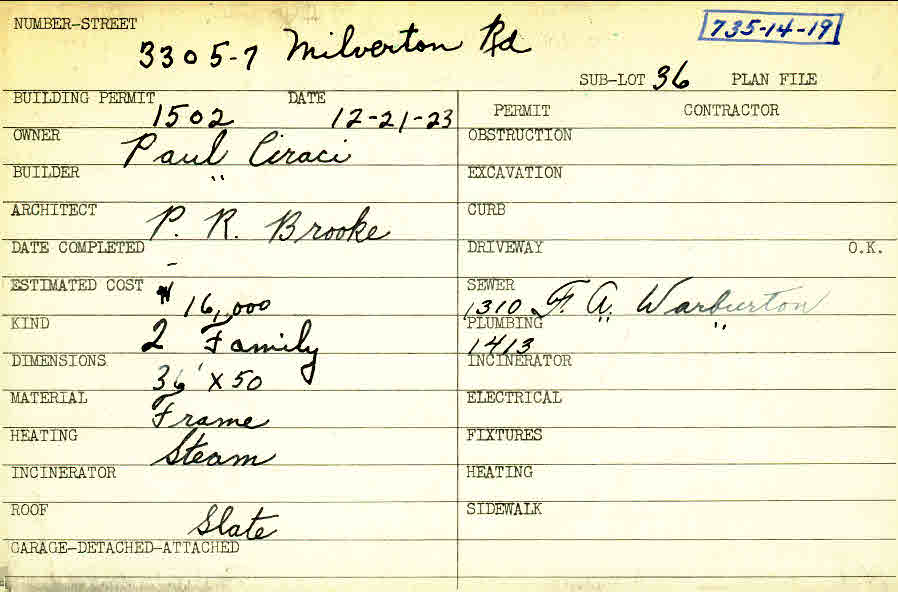 NUMBER-STREET
3305-7 Milverton Rd
735-14-19
SUB-LOT 36 PLAN FILE
BUILDING PERMIT 1502 DATE 12-21-23
OWNER Paul Ciraci
BUILDER "
ARCHITECT P. R. Brooke
DATE COMPLETED -
ESTIMATED COST $16,000
KIND 2 Family
DIMENSIONS 36' X 50
MATERIAL Frame
HEATING Steam
INCINERATOR
ROOF Slate
GARAGE-DETACHED-ATTACHED
PERMIT CONTRACTOR
OBSTRUCTION
EXCAVATION
CURB
DRIVEWAY O.K.
SEWER 1310 F. A. Warburton
PLUMBING 1413 " "
INCINERATOR
ELECTRICAL
FIXTURES
HEATING
SIDEWALK